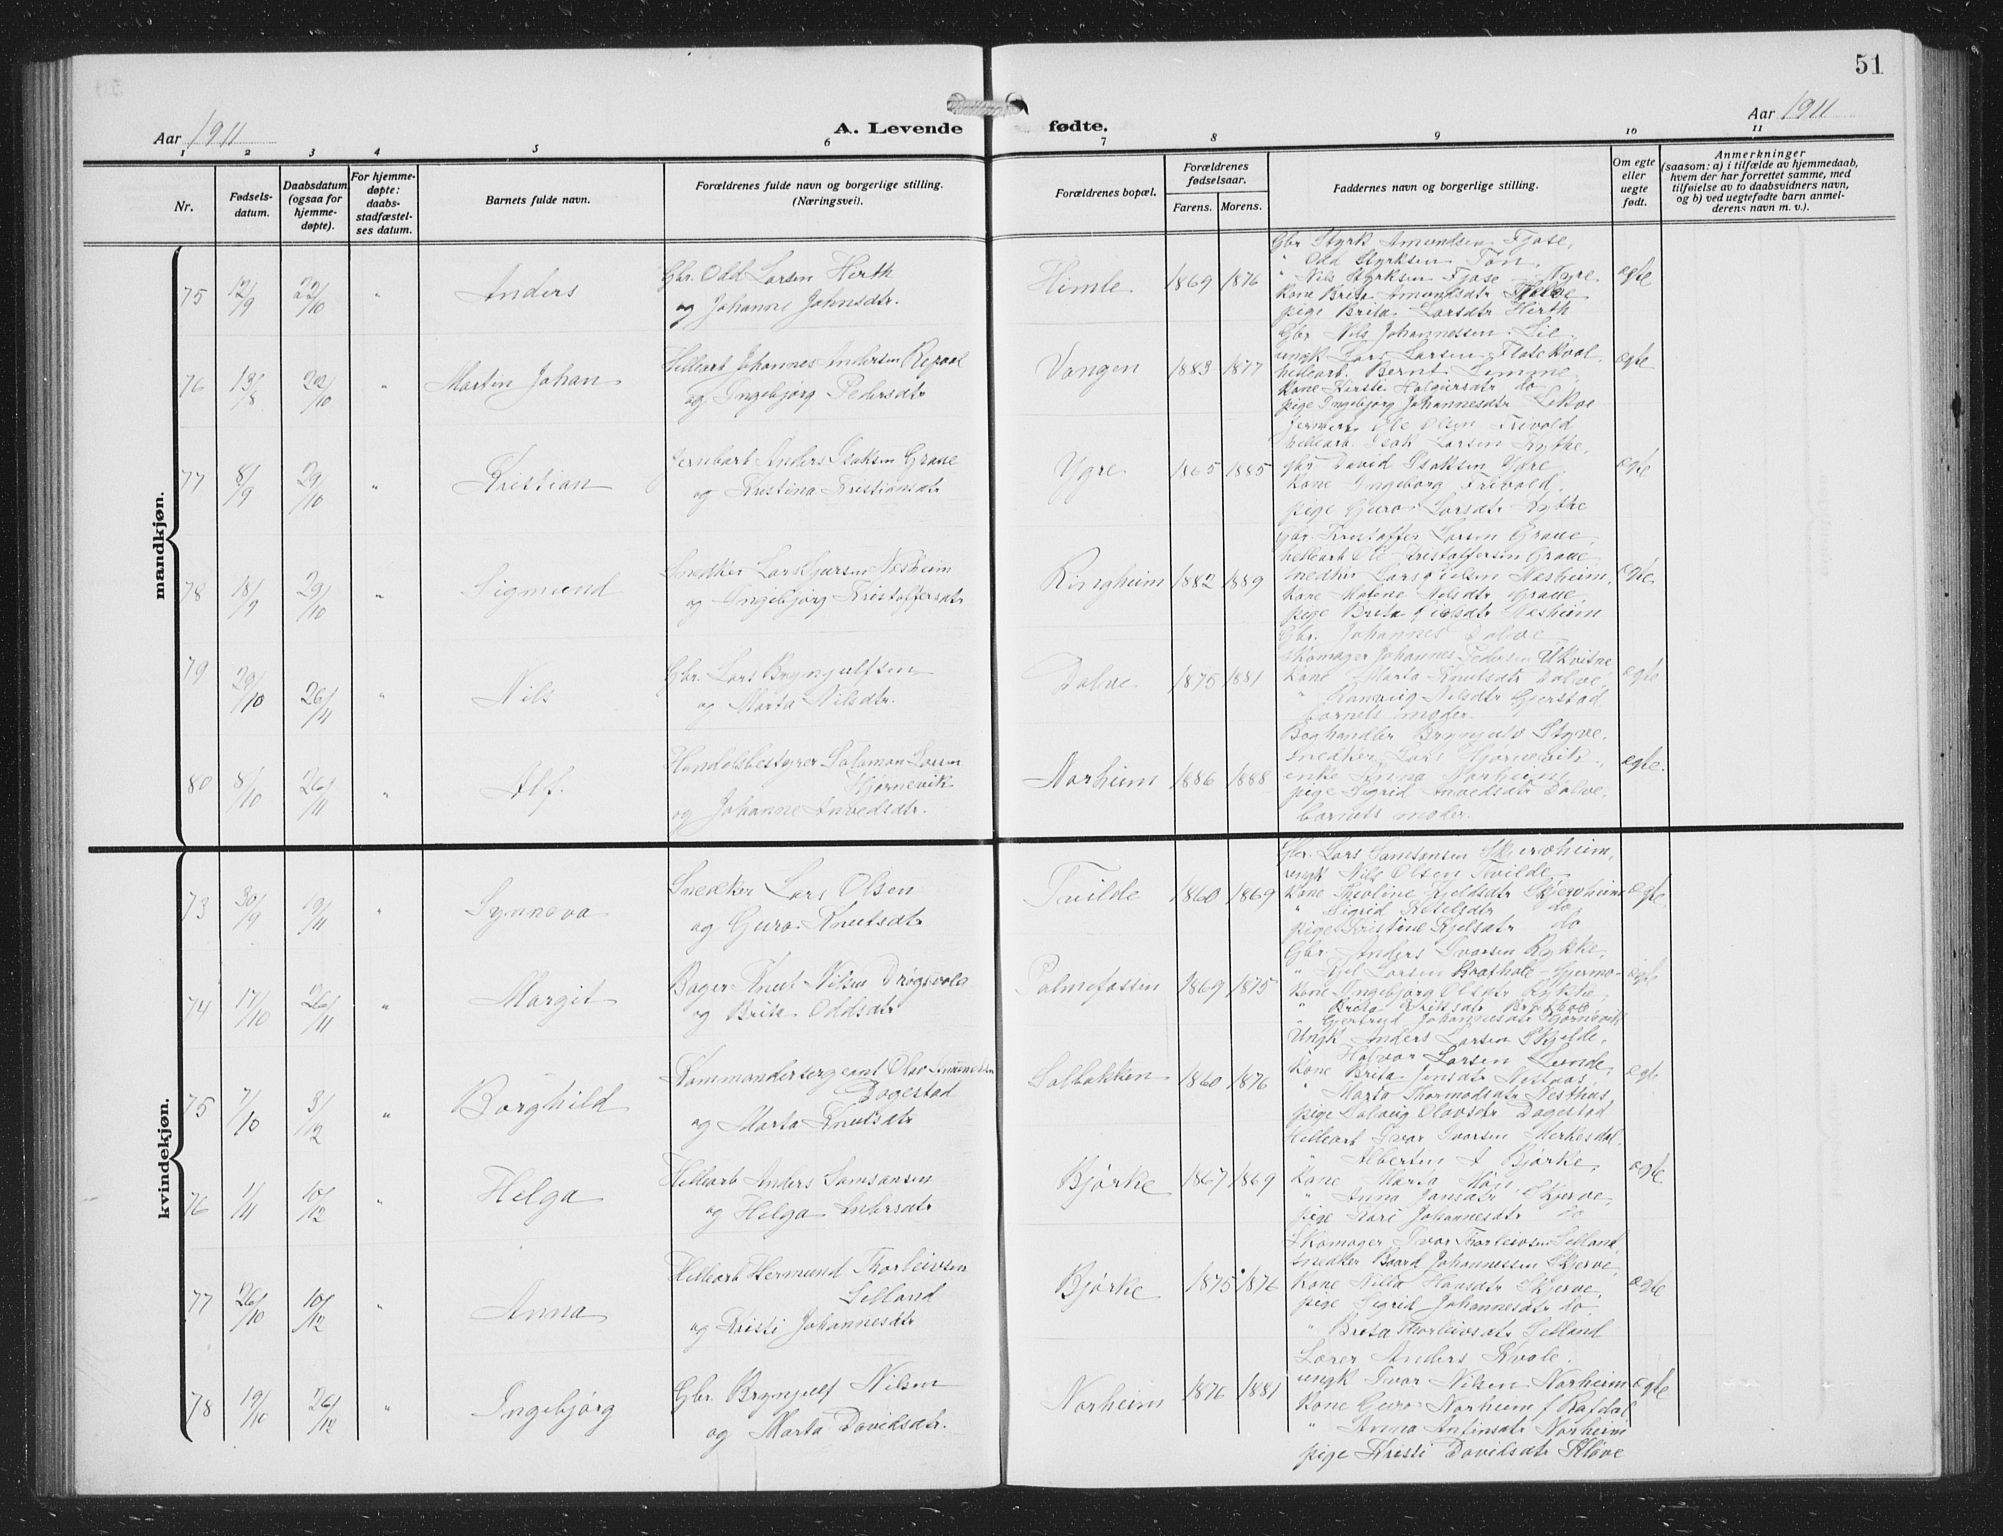 51
Aar 1911
A. Levende fødte.
Aar 1911
1 2 3 4 5 6 7 8 9 10 11
Nr.
Fødsels-
datum.
Daabsdatum
(ogsaa for
hjemme-
døpte).
For hjemme-
døpte:
daabs-
stadfæstel-
ses datum.
Barnets fulde navn.
Forældrenes fulde navn og borgerlige stilling.
(Næringsvei).
Forældrenes bopæl.
Forældrenes
fødselsaar.
Farens. Morens.
Faddernes navn og borgerlige stilling.
Om egte
eller
uegte
født.
Anmerkninger
(saasom: a) i tilfælde av hjemmedaab,
hvem der har forrettet samme, med
tilføielse av to daabsvidners navn,
og b) ved uegtefødte barn anmel-
derens navn m. v.).
mandkjøn.
75 12/9 22/10 " Anders
Gbr. Odd Larsen Hirth
og Johanne Johnsdtr.
Himle 1869 1876
Gbr Styrk Amundsen Fjose,
" Odd Styrksen Tøn,
" Nils Styrksen Fjose
Kone Brita Amundsdtr
pige Brita Larsdtr Hirth
egte
76 13/8 22/10 " Martin Johan
Hellearb Johannes Andersen Repaal
og Ingebjørg Pedersdtr
Vangen 1883 1877
Gbr Nils Johannessen Lie
ungk Lars Larsen Flatekval.
hellearb. Bernt Lemme
Kone Kirsti Holgersdtr do
pige Ingebjørg Johannesdtr Lekve
egte
77 8/9 29/10 " Kristian
Jernbarb Anders Isaksen Graue
og Kristina Kristiansdtr
Ygre 1865 1885
Ole Olsen Trivold
hellearb. Isak Larsen Kythe,
gbr David Isaksen Ygre
Kone Ingeborg Trivold.
pige Guro Larsdtr Kythe
egte
78 18/9 29/10 " Sigmund
Snedker Lars Gjursen Næsheim
og Ingebjørg Kristoffersdtr
Ringheim 1882 1889
Gbr. Kristoffer Larsen Graue,
hellearb Ole Kristoffersen Graue
snedker Lars Nielsen Næsheim,
Kone Malene Nilsdtr Graue,
pige Brita Næsheim
egte
79 29/10 26/11 " Nils
Gbr. Lars Brynjulfsen
og Marta Nilsdtr.
Dolve 1875 1881
Gbr. Johannes Dolve
Skomager Johannes Pedersen Ukvitne
Kone Marta Knutsdtr Dolve
" Ranveig Nilsdtr Gjerstad
barnets moder.
egte
80 8/10 26/11 " Alf.
Handelsbestyrer Salamon Larsen
Hjørnevik
og Johanne Anvedsdtr.
Norheim 1886 1888
Boghandler Brynjulv Styve,
snedker Lars Hjørnevik
enke Anna Norheim
pige Sigrid Anvedsdtr Dolve,
barnets moder.
egte.
kvindekjøn.
73 30/9 19/11 " Synneva
Snedker Lars Olsen
og Guro Knutsdtr
Tvilde 1860 1869
Gbr. Lars Samsonsen Skjerveheim,
ungk Nils Olsen Tvilde
Kone Theoline Kjeldsdtr Skjerveheim
" Sigrid Ketelsdtr do
pige Kristine Kjelsdtr do
egte
74 17/10 26/11 " Margit
Bager Knut Nilsen Drøgsvold
og Brita Oddsdtr
Palmefossen 1869 1875
Gbr. Anders Ivarsen Rykke,
" Kjel Larsen
Kone Ingebjørg Olsdtr Rykke,
" Brita
" Gjertrud Johannesdtr Hjørnevik
egte
75 7/10 3/12 " Borghild
Kommandersergeant Olav Amundsen
Dagestad
og Marta Knutsdtr
Solbakken 1860 1876
Ungk Anders Larsen Skjelde,
" Halvor Larsen Lunde,
Kone Brita Jensdtr Nestaas,
" Marta Thormodsdtr Nesthus,
pige Solveig Olavsdtr Dagestad
egte
76 1/4 10/12 " Helga
Hellearb Anders Samsonsen
og Helga Andersdtr
Bjørke 1867 1869
Hellearb Ivar Ivarsen Merkesdal,
" Albertin A Bjørke,
Kone Marta Møn,
" Anna Jonsdtr Skjerve,
pige Kari Johannesdtr do
egte
77 26/10 10/12 " Anna
Hellearb Hermund Thorleivsen
Selland
og Kristi Johannesdtr
Bjørke 1875 1876
Skomager Ivar Thorleivsen Selland,
snedker Baard Johannessen Skjerve,
Kone Nilla Haasdtr Skjerve,
pige Sigrid Johannesdtr do.
" Brita Thorleivsdtr Selland
egte
78 19/10 26/12 " Ingebjørg
Gbr. Brynjulf Nilsen
og Marta Davidsdtr.
Norheim 1876 1881
Lærer Anders Kvale.
ungk Ivar Nilsen Norheim
Kone Guro Norheim f Rafdal
" Anna Antinsdtr Norheim
pige Kristi Davidsdtr Kløve
egte